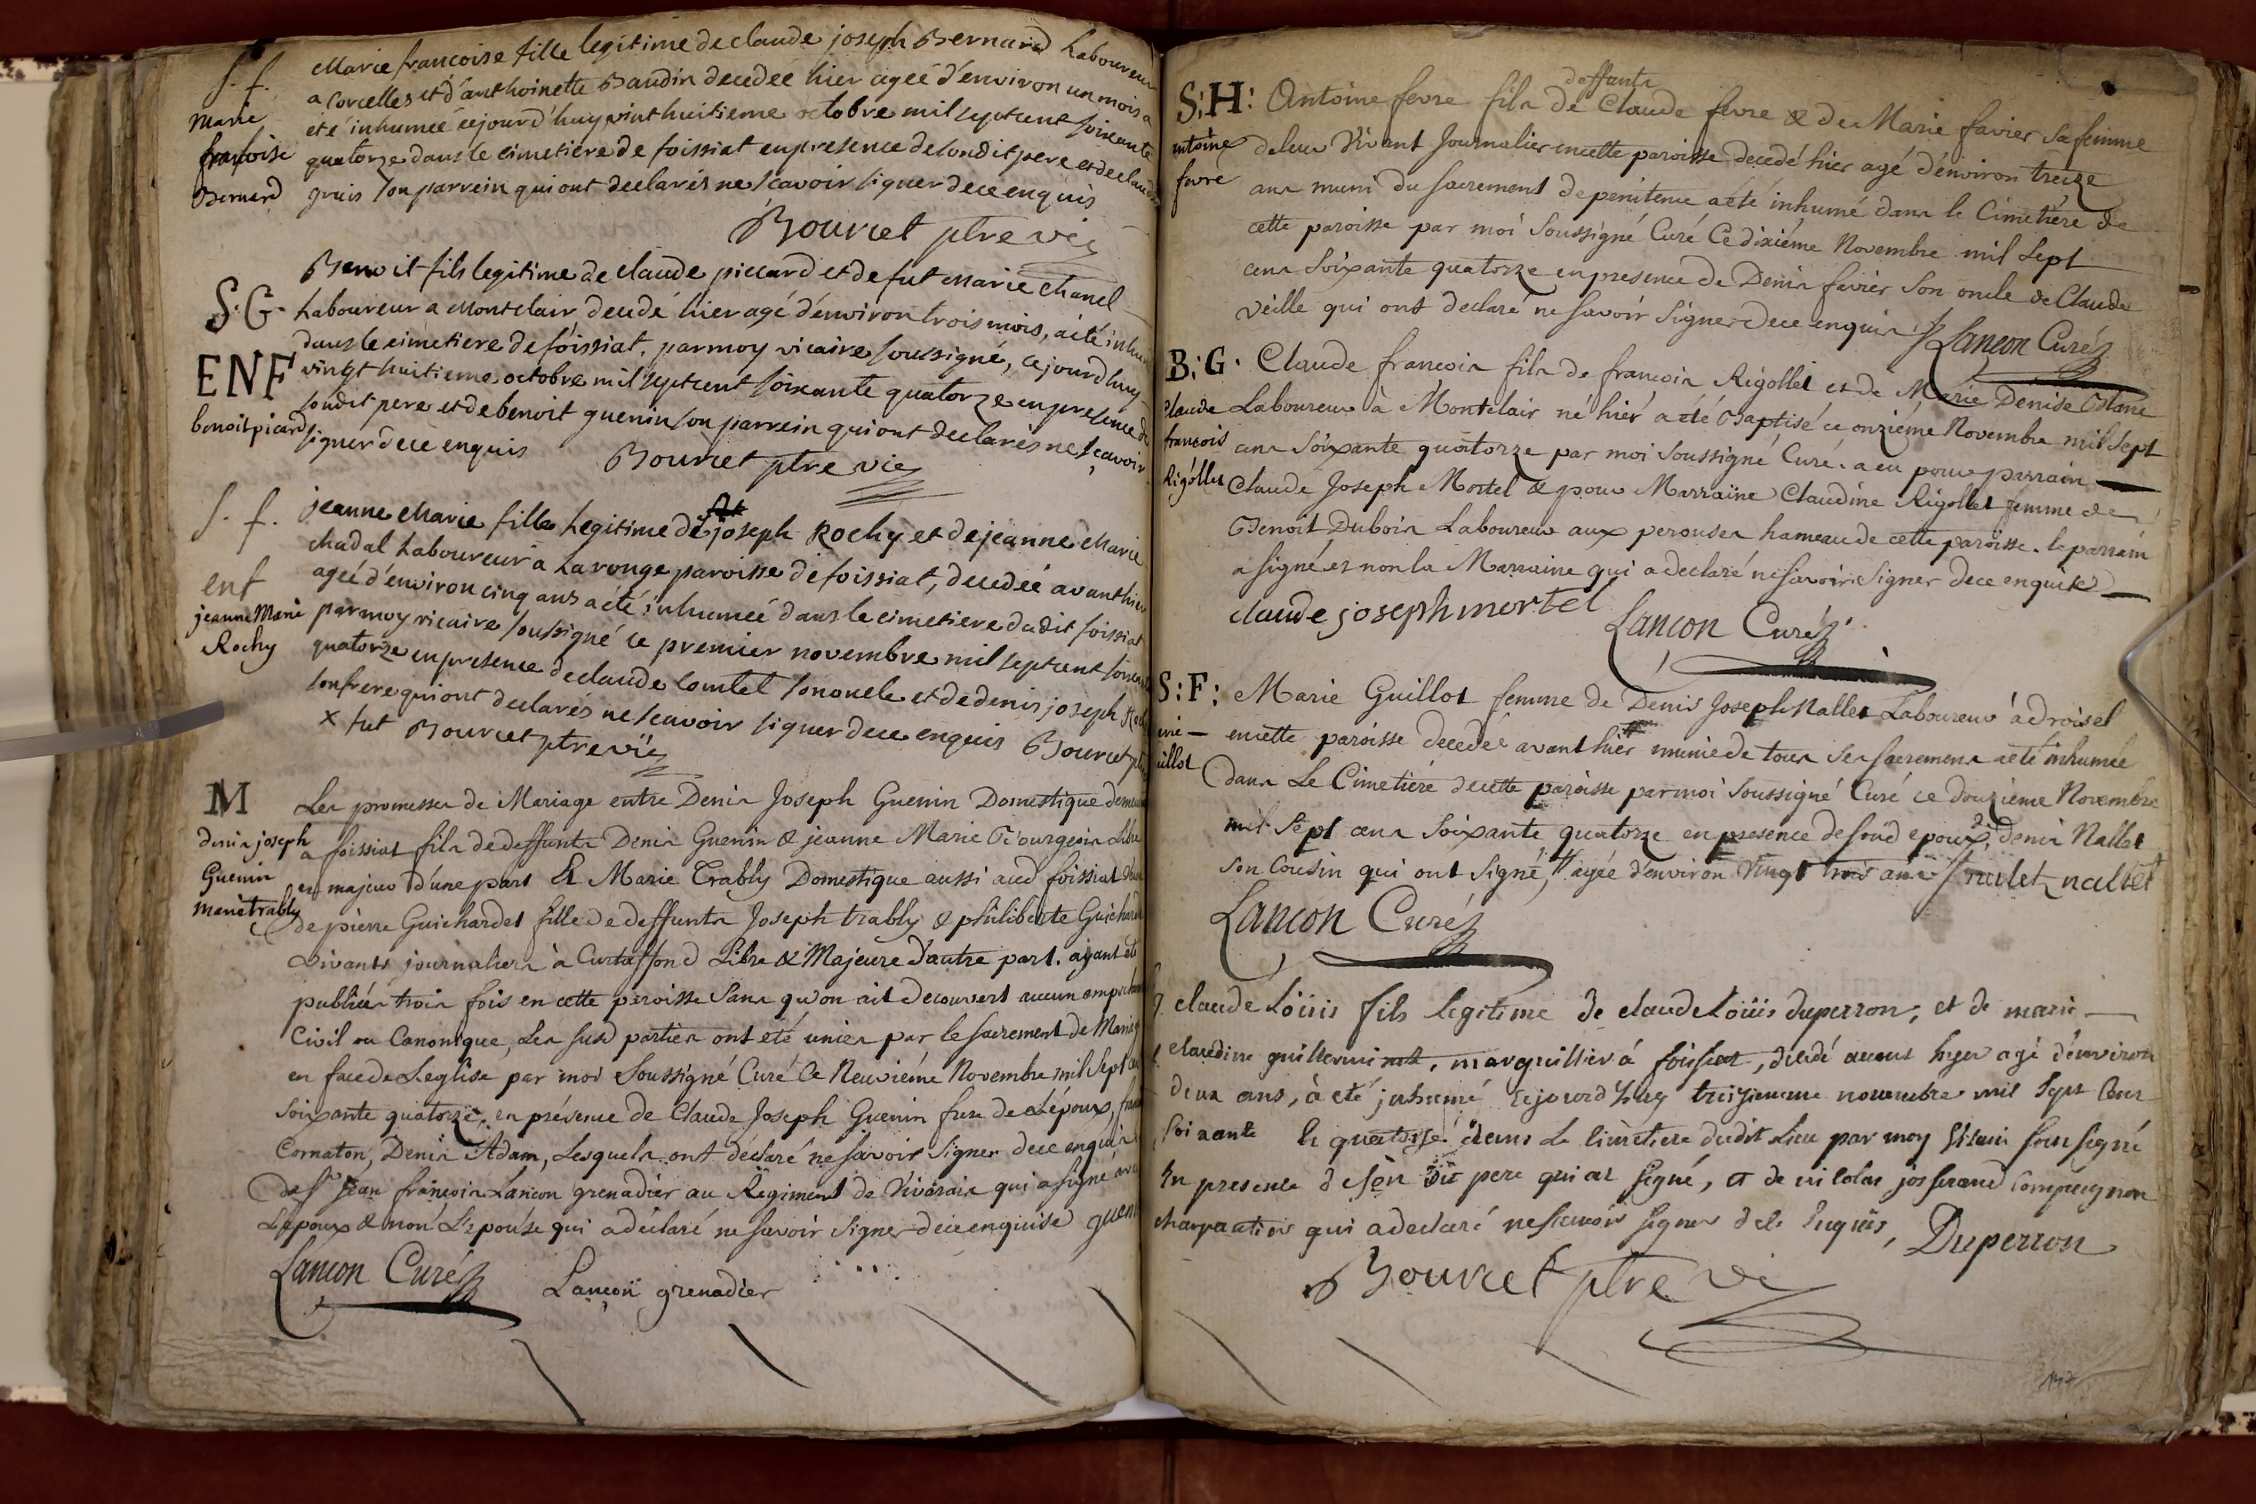 S. f.
Marie
françoise
Bernard
Marie francoise fille legitime de claude joseph Bernard Laboureur
a Corcelles et d'anthoinette Baudin decedeé hier ageé d'environ un mois a
été inhumeé cejourd'huy vint huitieme octobre mil septcent soixante
quatorze dans le cimetiere de foissiat en presence de sondit pere et de claude
gruis son parrein qui ont declarés ne scavoir signer de ce enquis
Bourcet ptre vic
S. G.
ENF
benoit picard
Benoit fils legitime de claude piccard et de fut Marie Chanel
Laboureur a Montclair decedé hier agé d'environ trois mois, a eté inhu
dans le cimetiere de foissiat, par moy vicaire soussigné, ce jourd'huy
vingt huitieme octobre mil septcent soixante quatorze en presence de
sondit pere et de benoit guenin son parrein qui ont declarés ne scavoir
signer de ce enquis Bourcet ptre vic
S. f.
enf
jeanne Marie
Rochy
jeanne Marie fille Legitime de joseph Rochy et de jeanne Marie
Chadal Laboureur à Laronge paroisse de foissiat, decedeé avanthier
ageé d'environ cinq ans a été inhumeé dans le cimetiere dudit foissiat
par moy vicaire soussigné ce premier novembre mil septcent soixante
quatorze en presence de claude Comtet son oncle et de denis joseph Roch
son frere qui ont declarés ne scavoir signer de ce enquis Bourcet pt
x fut Bourcet ptre vic
M
denis joseph
Guenin
marie trably
Les promesses de Mariage entre Denis Joseph Guenin Domestique demeu
a foissiat fils de deffunts Denis Guenin & jeanne Marie Bourgeois Libre
et majeur d'une part Et Marie Trably Domestique aussi aud foissiat
de pierre Guichardet fille de deffunts Joseph trably & philiberte Guichard
vivants journaliers à Curtaffond Libre & Majeure d'autre part. ayant été
publiées trois fois en cette paroisse Sans qu'on ait decouvert aucun empeche
Civil ou Canonique, Les susd parties ont eté unies par le sacrement de Mariag
en face de L'eglise par moi Soussigné Curé Ce Neuviéme Novembre mil Sept cen
soixante quatorze, en présence de Claude Joseph Guenin frere de L'époux,
Cornaton, Denis Adam, Lesquels ont déclaré ne savoir Signer de ce enquis
de Sr Jean francois Lancon grenadier au Régiment de Vivarais qui a signé avec
L'époux & non L'épouse qui a déclaré ne savoir Signer de ce enquise guen
Lancon Curé Lancon grenadier
S: H:
antoine
fevre
Antoine fevre fils de deffunts Claude fevre & de Marie favier sa femme
de leur Vivant Journalier en cette paroisse decedé hier agé d'environ treize
ans muni du sacrement de penitence a été inhumé dans le Cimetière de
cette paroisse par moi Soussigné Curé Ce dixiéme Novembre mil Sept
cens Soixante quatorze en presence de Denis favier Son oncle & Claude
Veille qui ont declaré ne savoir Signer de ce enquis Lancon Curé
B: G:
Claude
françois
Rigollet
Claude francois fils de francois Rigollet et de Marie Denise
Laboureur à Montclair né hier a été Baptisé ce onziéme Novembre mil Sept
cens Soixante quatorze par moi Soussigné Curé. a eu pour parrain
Claude Joseph Mortel & pour Marraine Claudine Rigollet femme de
Benoit Dubois Laboureur aux perouses hameau de cette paroisse. le parrain
a signé et non la Marraine qui a declaré ne savoir Signer de ce enquise
claude joseph mortel Lancon Curé
S: F:
rie
uillot
Marie Guillot femme de Denis Joseph Nallet Laboureur à droisel
en cette paroisse decedée avant hier # munie de tous ses sacremens a été inhumée
dans Le Cimetiere de cette paroisse par moi Soussigné Curé ce douzieme Novembre
mil Sept cens Soixante quatorze en presence de son d epoux, & denis Nallet
son Cousin qui ont signé, # agée d'environ vingt trois ans nalet nallet
Lancon Curé
claude Loüis fils legitime de claude Loüis duperron, et de marie
claudine guillerminet, marguillier á foissiat, décédé avant hyer agé d'environ
deux ans, à été inhumé cejourd'huy treizieme novembre mil sept cent
soixante & quatorze dans Le cimetiere dudit Lieu par moy vicaire soussigné
En presence de son dit pere qui at signé, et de nicolas josserand Compagnon
charpentier qui a declaré ne scavoir signer de ce Enquis, Duperron
Bourcet ptre vi